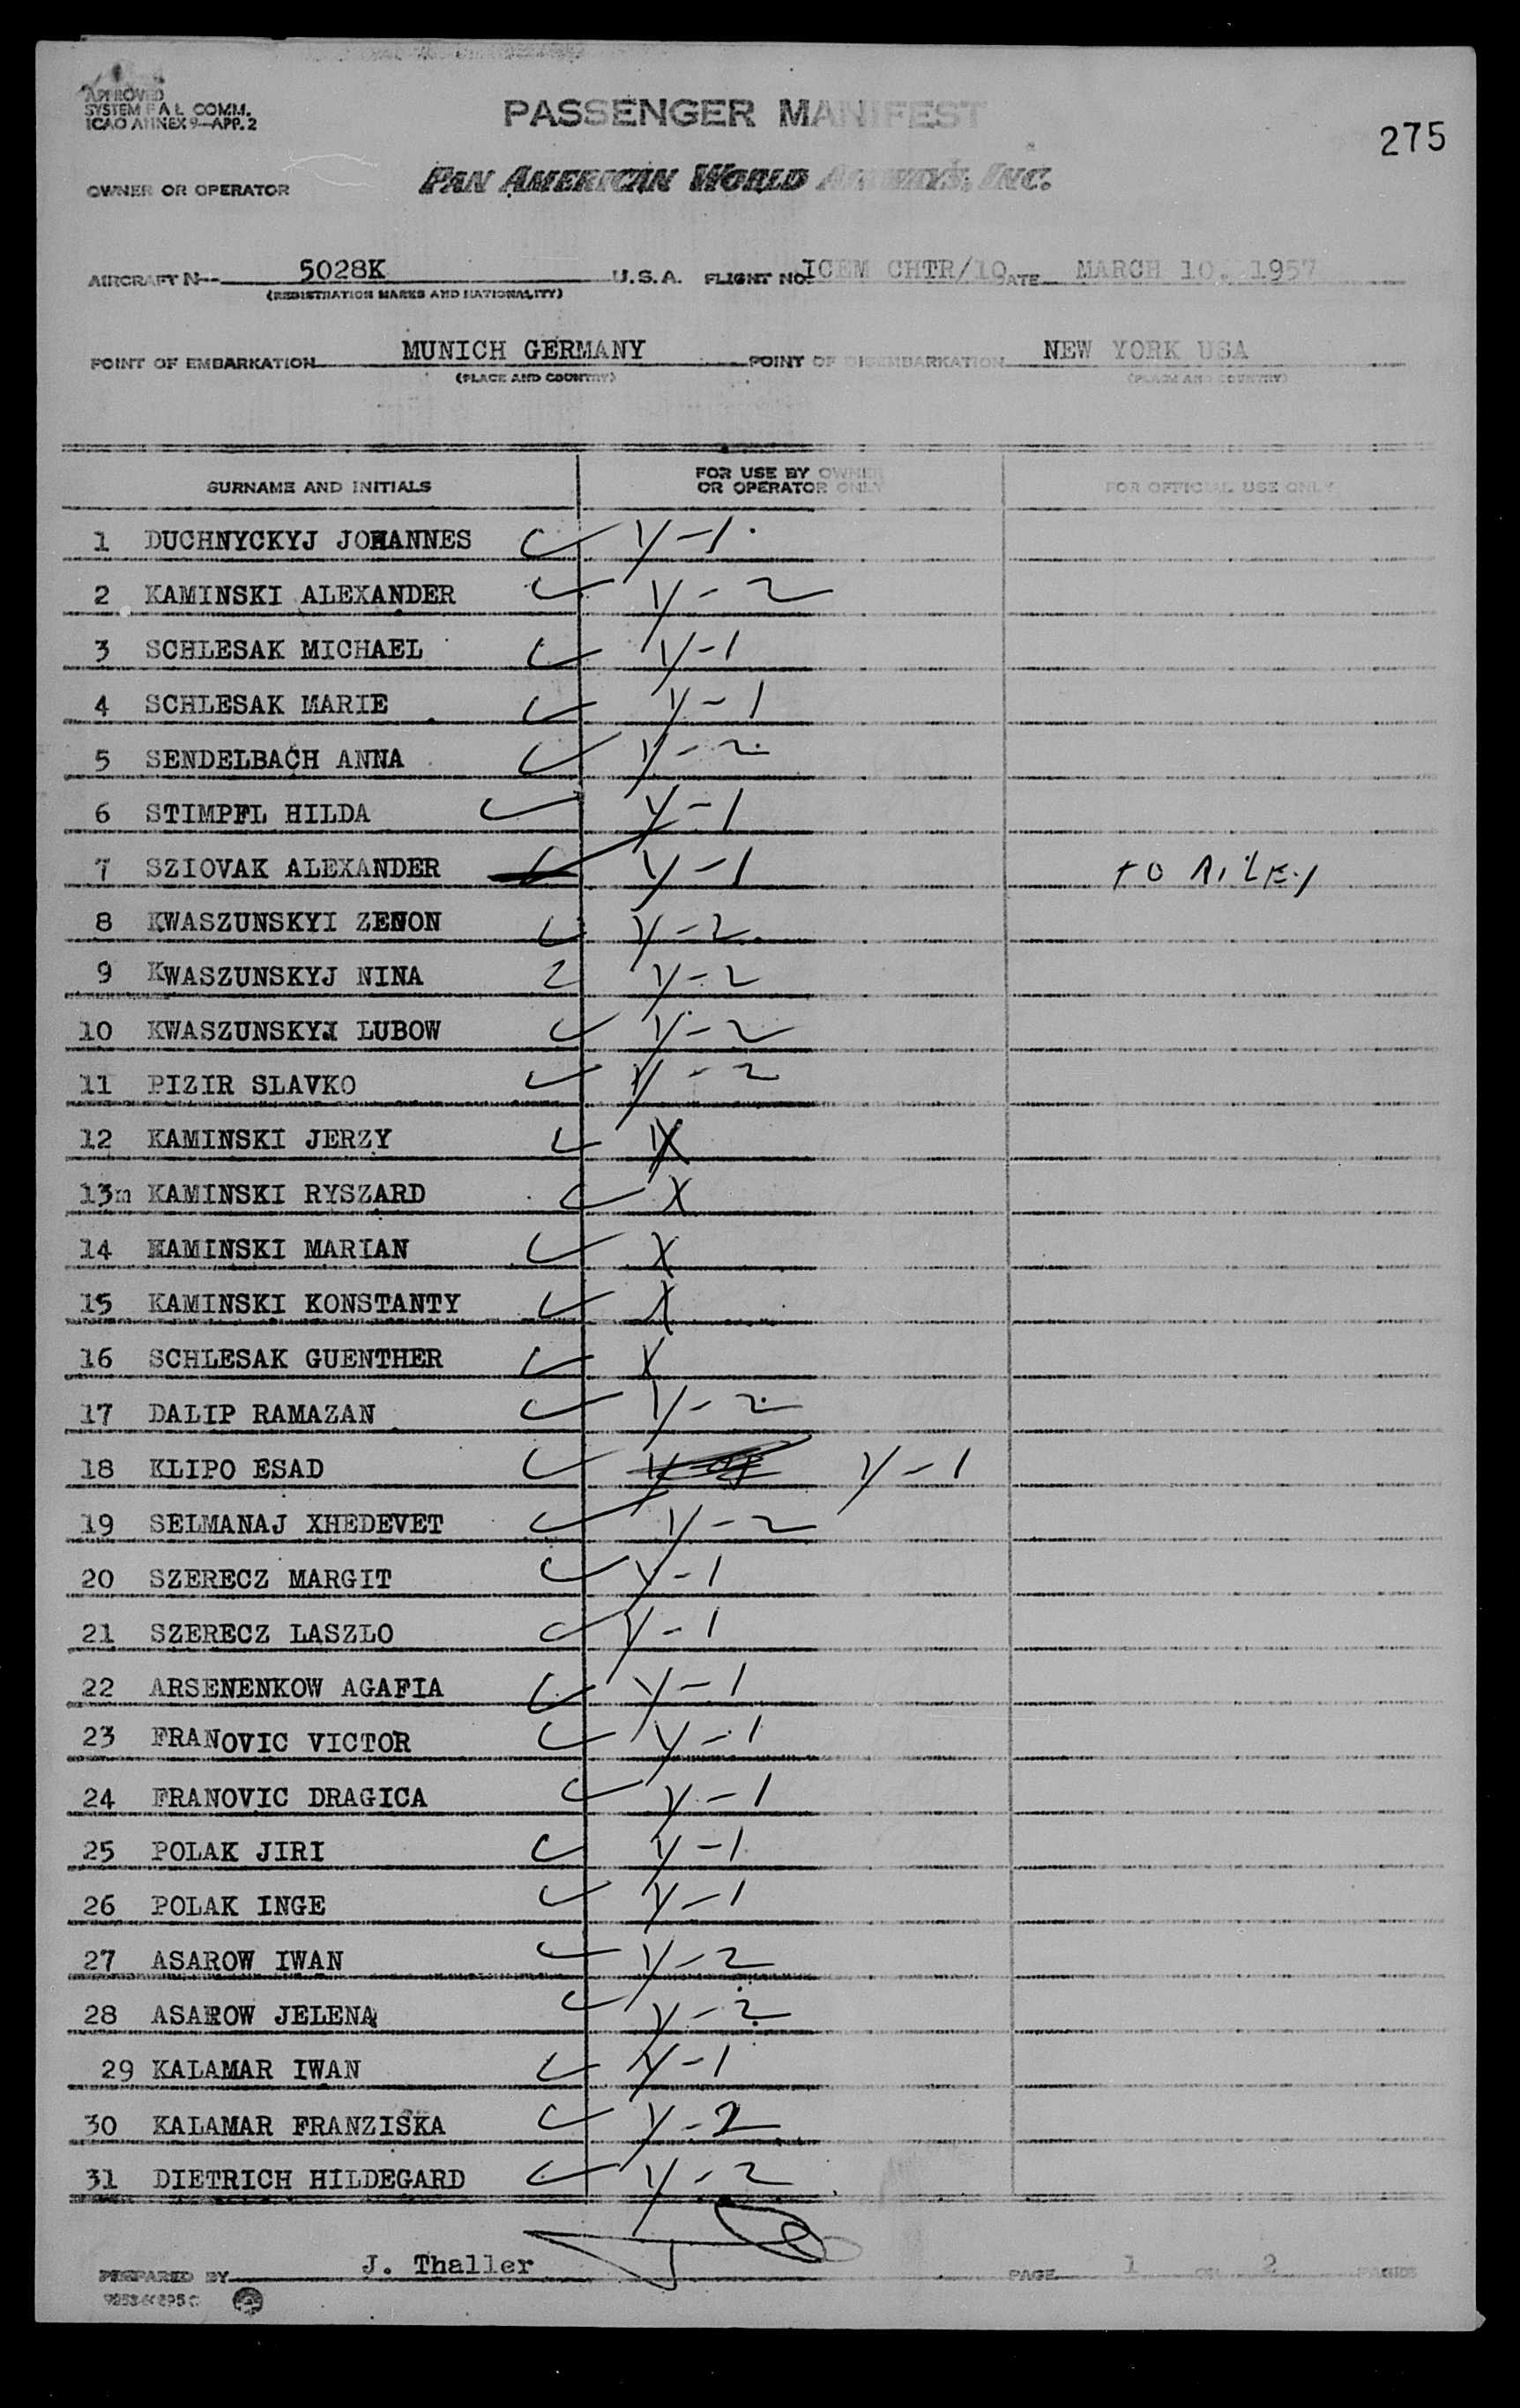 APPROVED
SYSTEM F A L COMM.
ICAO ANNEX 9—APP. 2
PASSENGER MANIFEST
275
OWNER OR OPERATOR PAN AMERICAN WORLD AIRWAYS, INC.
AIRCRAFT N— 5028K U.S.A. FLIGHT NO. ICEM CHTR/10 DATE MARCH 10. 1957
(REGISTRATION MARKS AND NATIONALITY)
POINT OF EMBARKATION MUNICH GERMANY POINT OF DISEMBARKATION NEW YORK USA
(PLACE AND COUNTRY) (PLACE AND COUNTRY)
SURNAME AND INITIALS FOR USE BY OWNER OR OPERATOR ONLY FOR OFFICIAL USE ONLY
1 DUCHNYCKYJ JOHANNES Y-1
2 KAMINSKI ALEXANDER Y-2
3 SCHLESAK MICHAEL Y-1
4 SCHLESAK MARIE Y-1
5 SENDELBACH ANNA Y-2
6 STIMPFL HILDA Y-1
7 SZIOVAK ALEXANDER Y-1 TO RILEY
8 KWASZUNSKYI ZENON Y-2
9 KWASZUNSKYJ NINA Y-2
10 KWASZUNSKYJ LUBOW Y-2
11 PIZIR SLAVKO Y-2
12 KAMINSKI JERZY X
13m KAMINSKI RYSZARD X
14 KAMINSKI MARIAN X
15 KAMINSKI KONSTANTY X
16 SCHLESAK GUENTHER X
17 DALIP RAMAZAN Y-2
18 KLIPO ESAD Y-1
19 SELMANAJ XHEDEVET Y-2
20 SZERECZ MARGIT Y-1
21 SZERECZ LASZLO Y-1
22 ARSENENKOW AGAFIA Y-1
23 FRANOVIC VICTOR Y-1
24 FRANOVIC DRAGICA Y-1
25 POLAK JIRI Y-1
26 POLAK INGE Y-1
27 ASAROW IWAN Y-2
28 ASAROW JELENA Y-2
29 KALAMAR IWAN Y-1
30 KALAMAR FRANZISKA Y-2
31 DIETRICH HILDEGARD Y-2
PREPARED BY J. Thaller PAGE 1 OF 2 PAGES